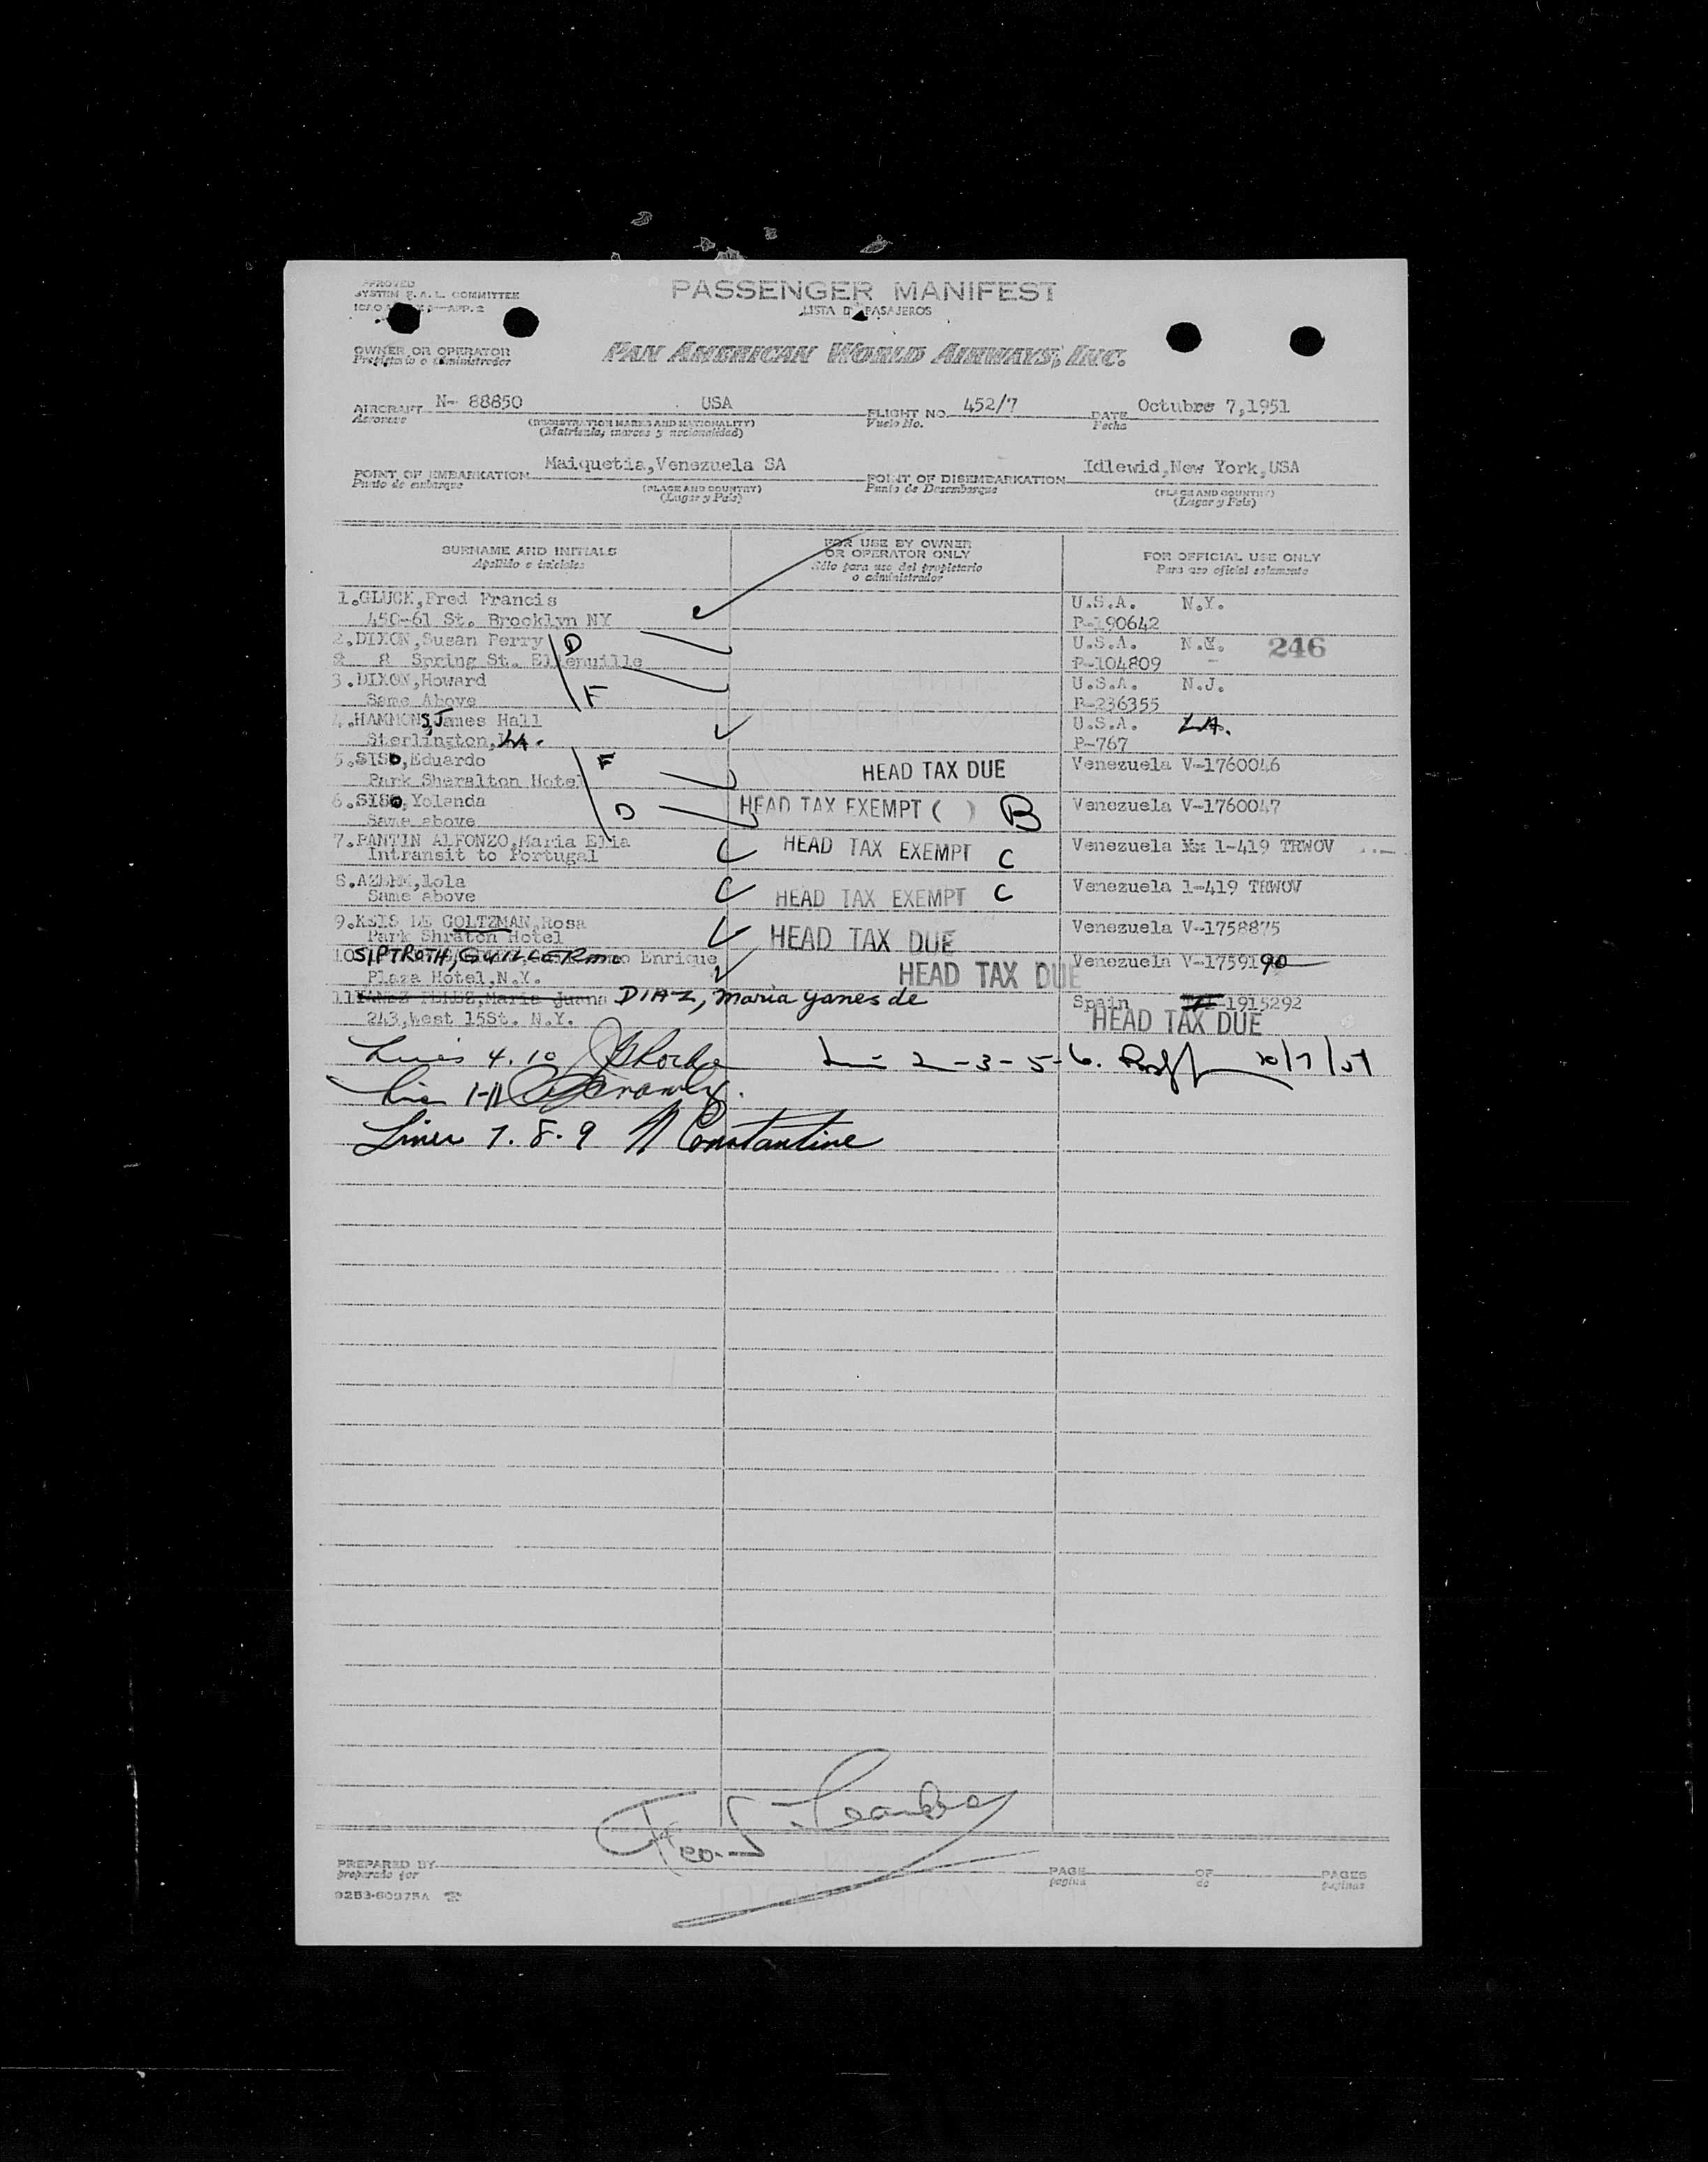 PASSENGER MANIFEST
LISTA DE PASAJEROS
APPROVED
SYSTEM F.A.L. COMMITTEE
OWNER OR OPERATOR
Propietario o administrador
PAN AMERICAN WORLD AIRWAYS, INC.
AIRCRAFT N- 88850 USA FLIGHT NO. 452/7 DATE Octubre 7,1951
Aeronave (REGISTRATION MARKS AND NATIONALITY) Vuelo No. Fecha
(Matrícula, marcas y nacionalidad)
POINT OF EMBARKATION Maiquetia,Venezuela SA POINT OF DISEMBARKATION Idlewid,New York,USA
Punto de embarque (PLACE AND COUNTRY) Punto de Desembarque (PLACE AND COUNTRY)
(Lugar y País) (Lugar y País)
SURNAME AND INITIALS FOR USE BY OWNER OR OPERATOR ONLY FOR OFFICIAL USE ONLY
Apellido e iniciales Sólo para uso del propietario o administrador Para uso oficial solamente
1.GLUCK,Fred Francis U.S.A. N.Y.
450-61 St. Brooklyn NY P-190642
2.DIXON,Susan Perry D U.S.A. N.Y. 246
8 Spring St. Ellenuille P-104809
3.DIXON,Howard U.S.A. N.J.
Same Above F P-236355
4.HAMMONS,James Hall U.S.A. LA.
Sterlington,LA. P-767
5.SISO,Eduardo F HEAD TAX DUE Venezuela V-1760046
Park Sheralton Hotel
6.SISO,Yolanda D HEAD TAX EXEMPT ( ) B Venezuela V-1760047
Same above
7.PANTIN ALFONZO,Maria Elia HEAD TAX EXEMPT C Venezuela 1-419 TRWOV
Intransit to Portugal
8. Lola HEAD TAX EXEMPT C Venezuela 1-419 TRWOV
Same above
9.KEIS DE GOLTZMAN,Rosa HEAD TAX DUE Venezuela V-1758875
Park Shraton Hotel
10 SIPTROTH, GUILLERMO Enrique HEAD TAX DUE Venezuela V-1759190
Plaza Hotel,N.Y.
11 Maria Juana DIAZ, Maria Yanes de Spain 1915292
243,West 15St. N.Y. HEAD TAX DUE
Lines 4.10
2-3-5-6. 10/7/51
Lines 1-11
Lines 7.8.9 N Constantine
PREPARED BY PAGE OF PAGES
preparado por pagina de paginas